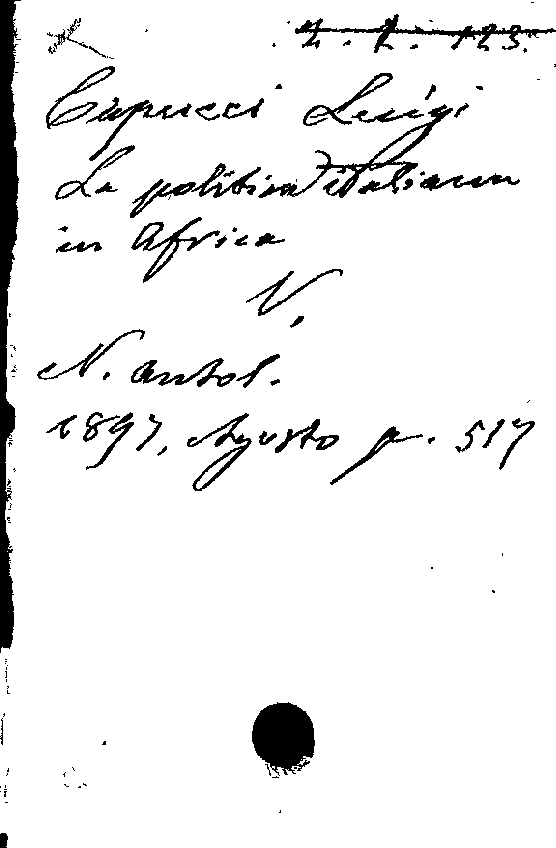 Z. Z. 123.
Capucci Luigi
La politica italiana
in Africa
V.
N. Antol.
1897, Agosto p. 517